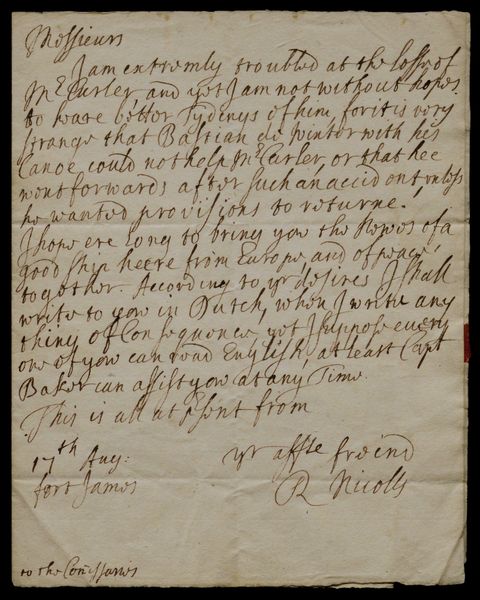 Messieurs
I am extremly troubled at the losse of
Mr Curler and yet I am not without hopes
to heare better Tydings of him, for it is very
strange that Bastian de Winter with his
Canoe could not help Mr Curler, or that hee
went forwards after such an accident unless
he wanted provisions to returne.
I hope ere long to bring yow the Newes of a
good ship heere from Europe and of peace
together. According to yr desires I shall
write to yow in Dutch, when I write any
thing of Consequence, yet I suppose every
one of yow can read English, at least Capt
Baker can assist yow at any Time.
This is all at psent from
yr affte freind
17th Aug:
R Nicolls
fort James
to the Comissaries